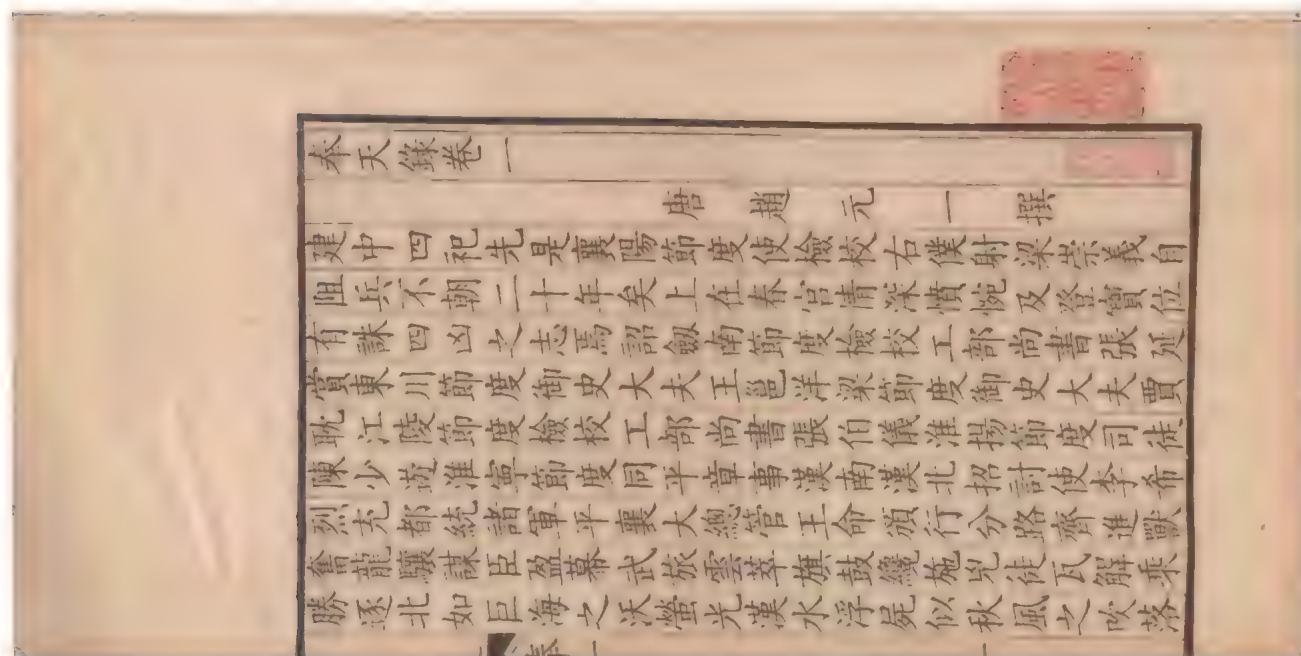 奉天錄卷一
唐趙元一撰
建中四祀先是襄陽節度使檢校右僕射梁崇義自
阻兵不朝二十年矣上在春宮情深憤惋及登寶位
有誅四凶之志焉詔劒南節度檢校工部尚書張延
賞東川節度御史大夫王邕洋梁節度御史大夫賈
耽江陵節度檢校工部尚書張伯儀淮揚節度司徒
陳少遊淮寧節度同平章事漢南漢北招討使李希
烈充都統諸軍平襄大總管王命頒行分路齊進獸
奮龍驤謀臣盈幕武旅雲萃旗鼓纔施兇徒瓦解乘
勝逐北如巨海之沃螢光漢水浮屍似秋風之吹落
奉